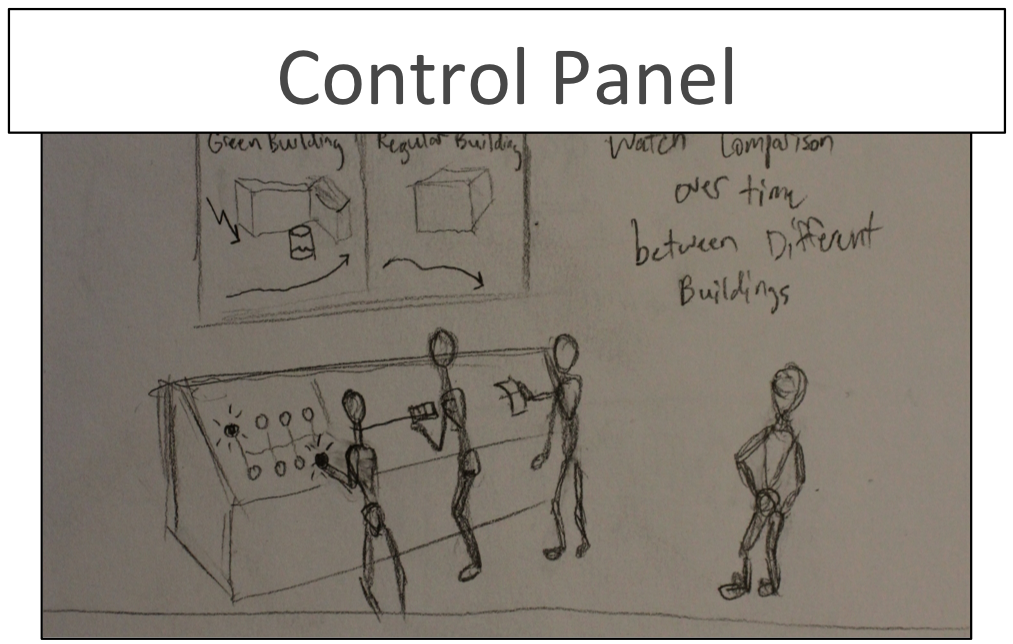 Control Panel
Green Building
Regular Building
Watch Comparison
over time
between Different
Buildings